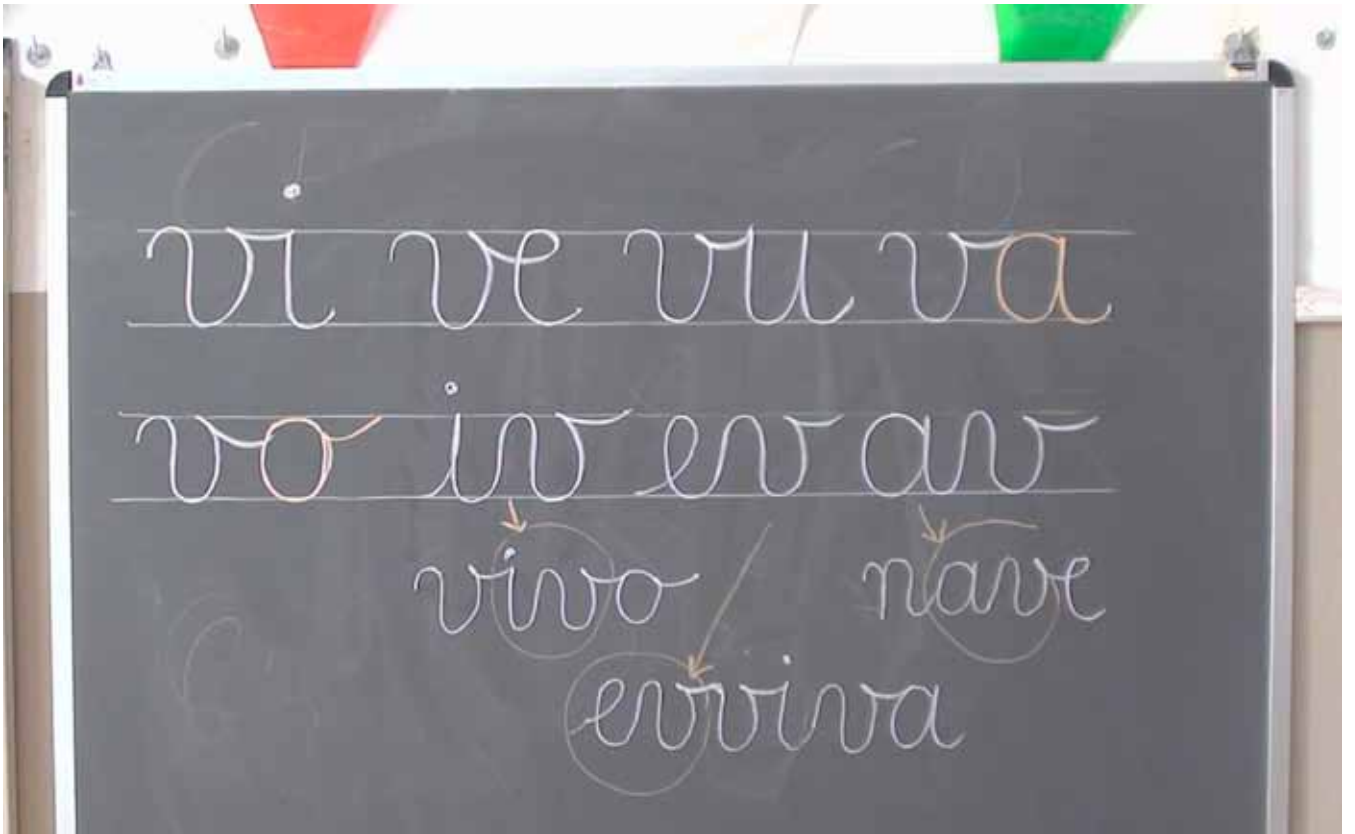 vi ve vu va
vo iv ev av
vivo nave
evviva